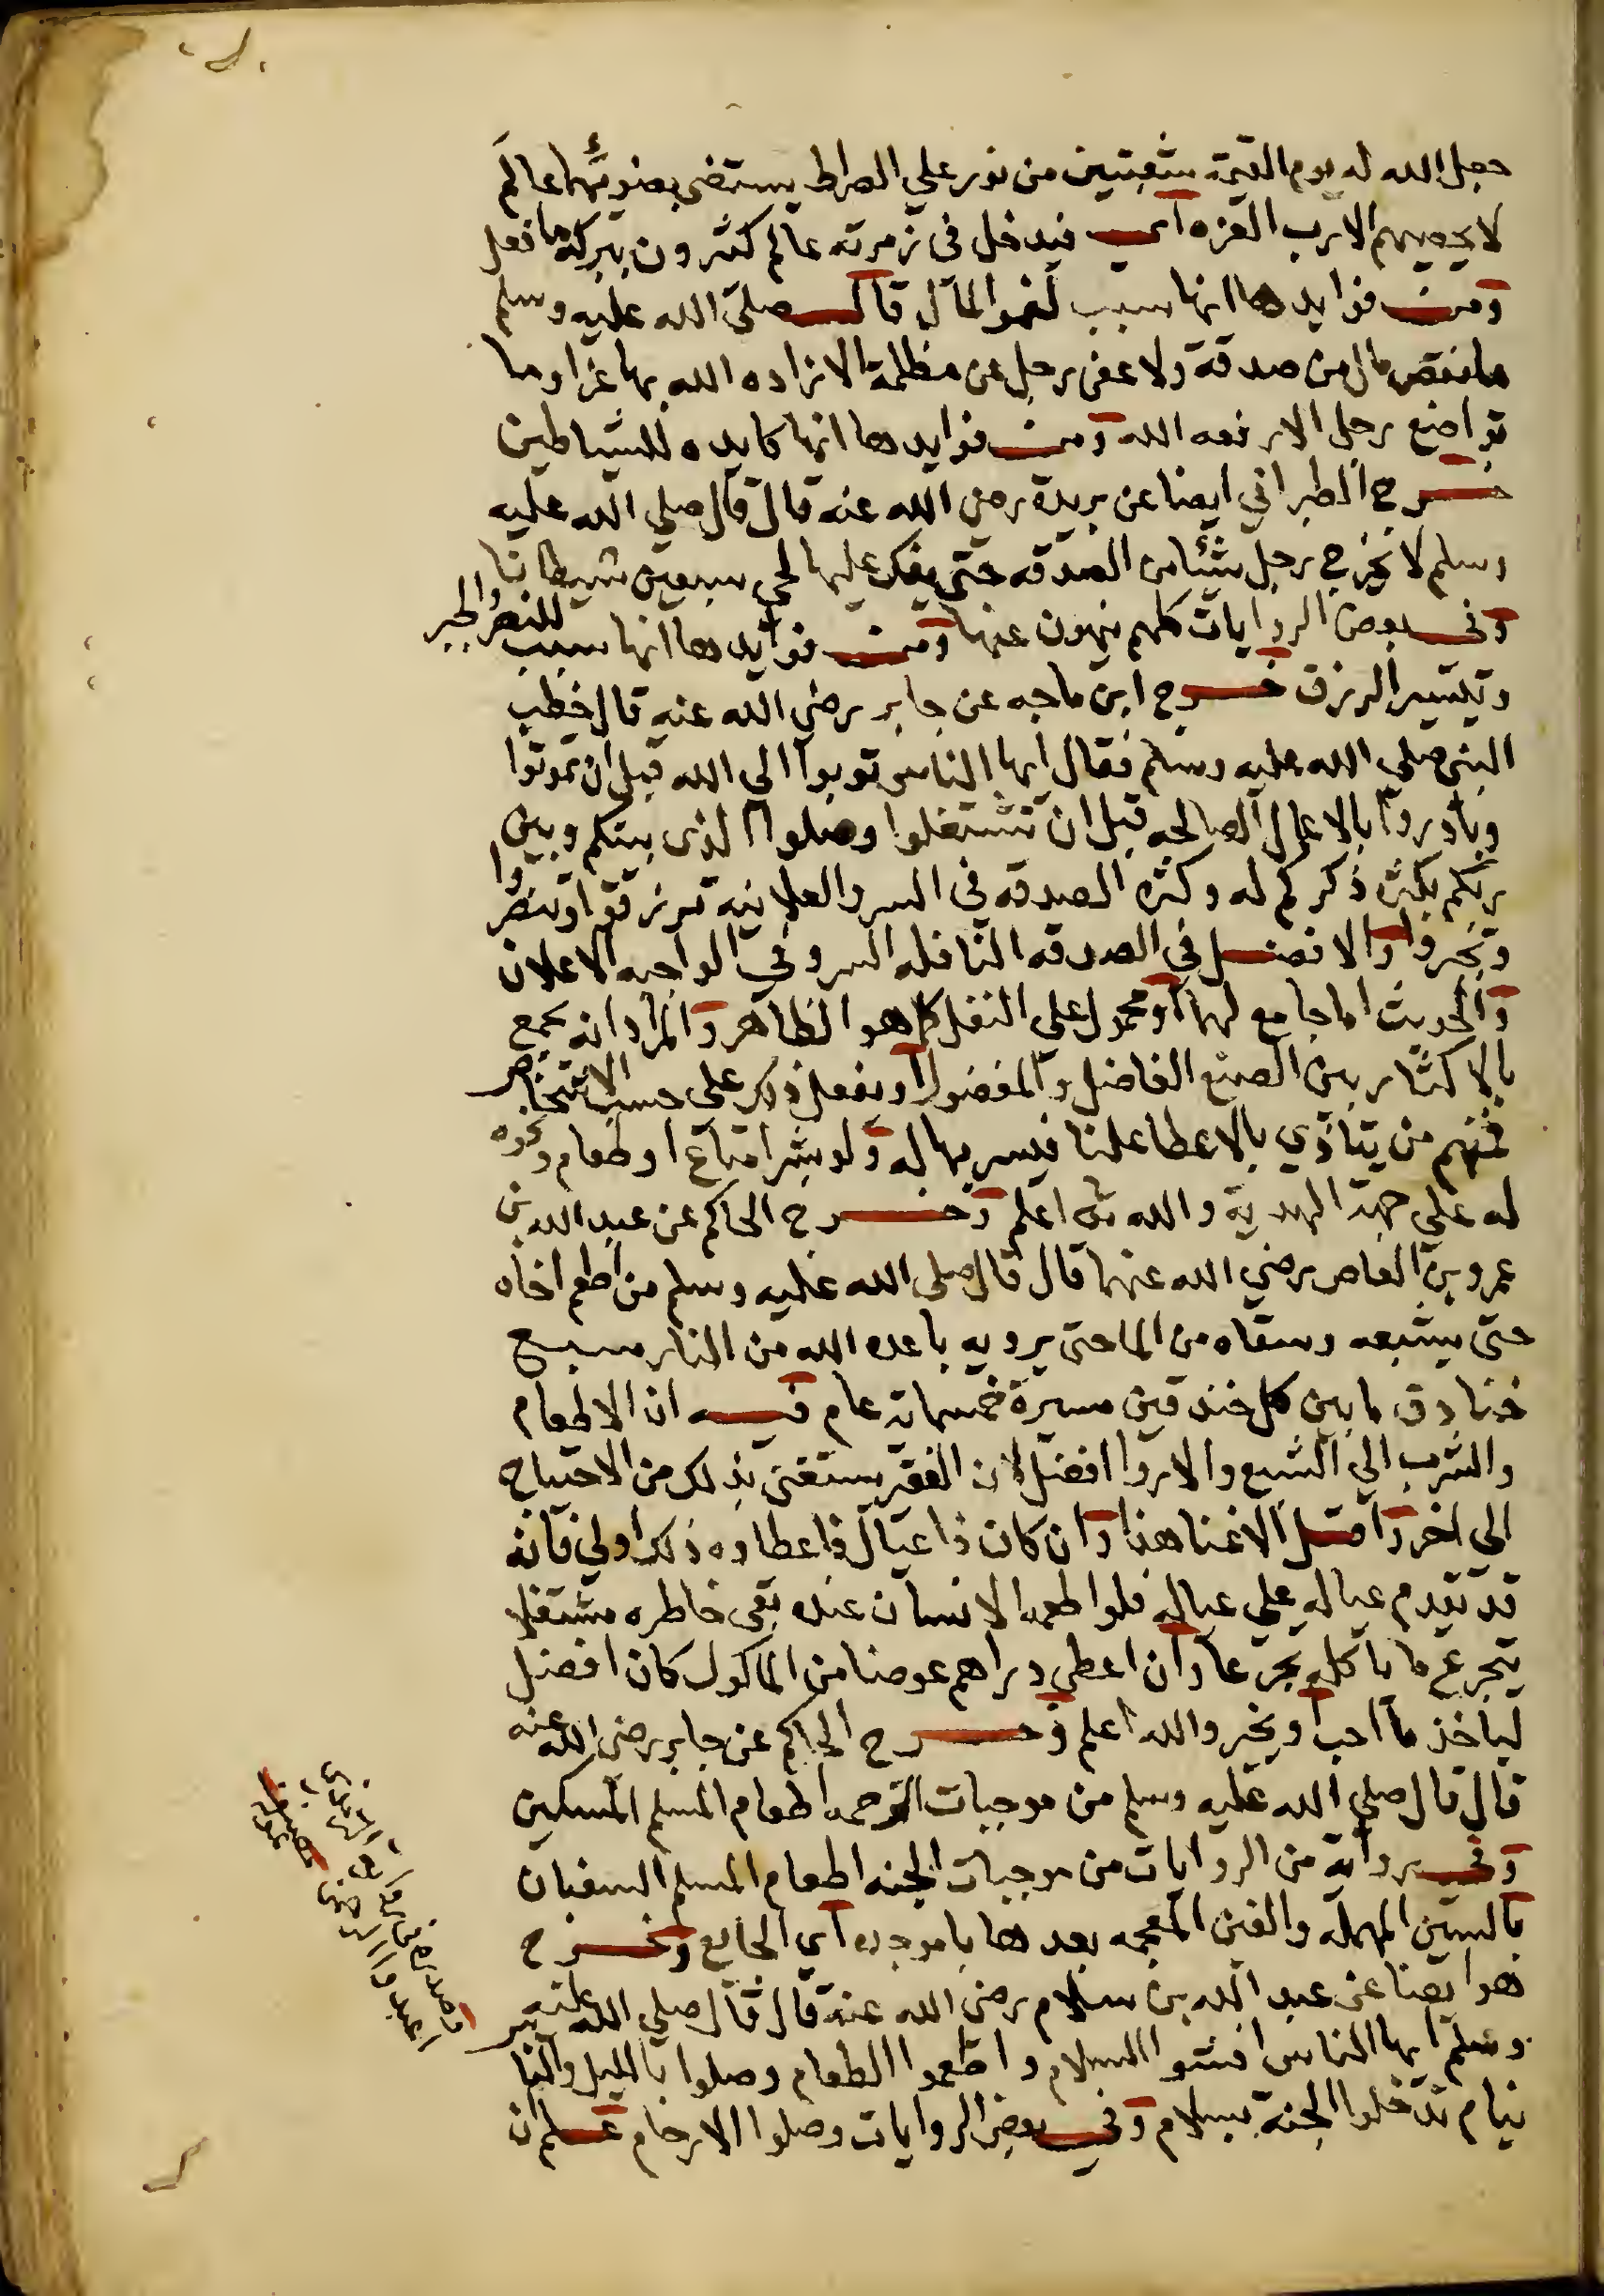 جعل الله له يوم القيمة شعبتين من نور علي الصراط يستضي بضوئهما عالم
لا يحصيهم الا رب العزه اي فيدخل في زمرته عالم كثيرون ببركة ما فعل
ومن فوايدها انها سبب لنمو المال قال صلى الله عليه وسلم
ما نقص مال من صدقة ولا عفى رجل عن مظلمة الا زاده الله بها عزا وما
تواضع رجل الا رفعه الله ومن فوايدها انها كايده للشياطين
خرج الطبراني ايضا عن بريدة رضي الله عنه قال قال صلي الله عليه
وسلم لا يخرج رجل شئا من الصدقه حتى يفك عليها لحي سبعين شيطانا
وفي بعض الروايات كلهم ينهون عنها ومن فوايدها انها سبب للنصر والجبر
وتيسير الرزق خرج ابن ماجه عن جابر رضي الله عنه قال خطب
النبي صلي الله عليه وسلم فقال ايها الناس توبوا الي الله قبل ان تموتوا
وبادروا بالاعمال الصالحه قبل ان تشتغلوا وصلوا الذى بينكم وبين
ربكم بكثرة ذكركم له وكثره الصدقه في السر والعلانيه ترزقوا وتنصروا
وتجبروا والافضل في الصدقه النافله السر وفي الواجبه الاعلان
والحديث اما جامع لهما او محمول على النفل كما هو الظاهر والمراد انه يجمع
بالاكثار بين الصنع الفاضل والمفضول او يفعل ذلك على حسب الاشخاص
فمنهم من يتاذي بالاعطا علنا فيسر بها له ولو بشرا متاع او طعام ونحوه
له على جهة الهدية والله تعالى اعلم وخرج الحاكم عن عبد الله بن
عمرو بن العاص رضي الله عنهما قال قال صلى الله عليه وسلم من اطعم اخاه
حتى يشبعه وسقاه من الماء حتى يرويه باعده الله من النار سبع
خنادق ما بين كل خندقين مسيرة خمسماية عام فيه ان الاطعام
والشرب الي الشبع والاروا افضل لان الفقير يستغني بذلك من الاحتياج
الى اخر واقل الاغنا هذا وان كان ذا عيال فاعطاوه ذلك اولي فانه
قد تقدم عياله علي عياله فلو اطعمه الانسان عنده بقى خاطره مشتغلا
يتجرع ما ياكله تجرعا وان اعطي دراهم عوضا من الماكول كان افضل
لياخذ ما احب ويخير والله اعلم وخرج الحاكم عن جابر رضي الله عنه
قال قال صلي الله عليه وسلم من موجبات الرحمه اطعام المسلم المسكين
وفي رواية من الروايات من موجبات الجنه اطعام المسلم السغبان
بالسين المهمله والغين المعجمه بعدها با موحده اي الجايع وخرج
هو ايضا عن عبد الله بن سلام رضي الله عنه قال قال صلي الله عليه
وسلم ايها الناس افشوا السلام واطعموا الطعام وصلوا بالليل والناس
نيام تدخلوا الجنة بسلام وفي بعض الروايات وصلوا الارحام علم ان
وصدره في رواية الترمذي
اعبدوا الرحمن